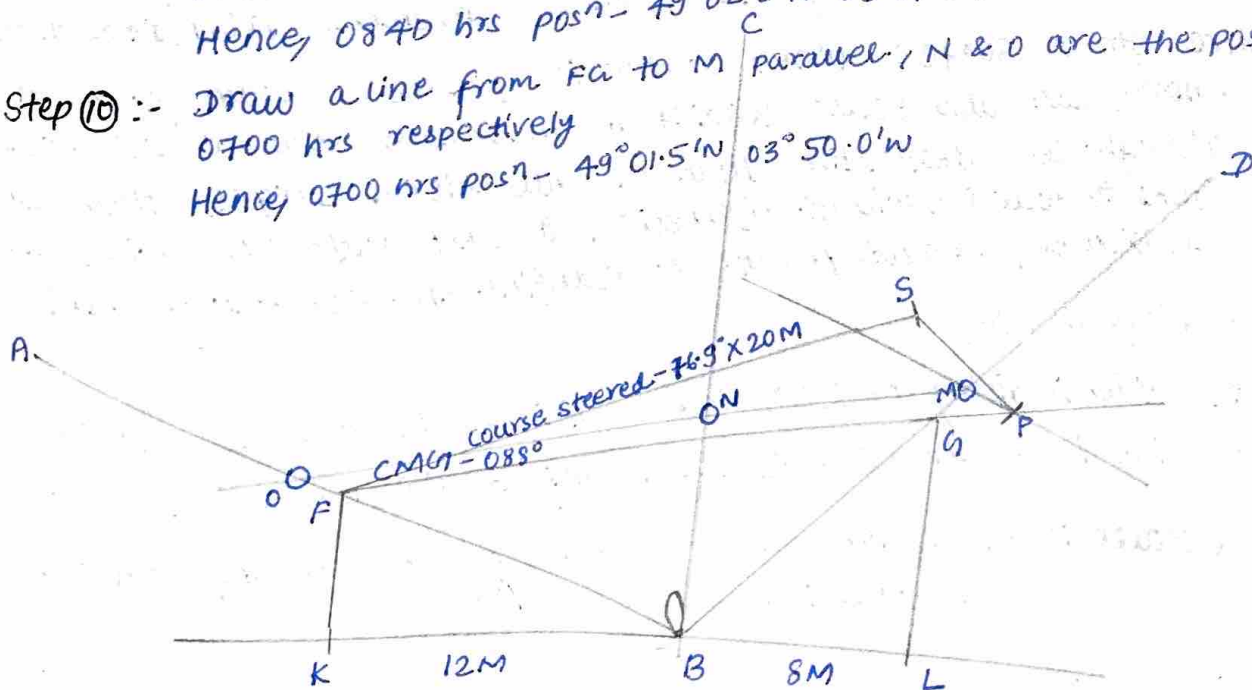 Hence, 0840 hrs posⁿ- 49
Step ⑩ :- Draw a line from FG to M parallel, N & O are the pos
0700 hrs respectively
Hence, 0700 hrs posⁿ- 49°01.5'N 03°50.0'W
C
D
S
A
Course steered - 76.9° X 20M
N
M
CMG - 088°
P
G
O
F
K
12M
B
8M
L